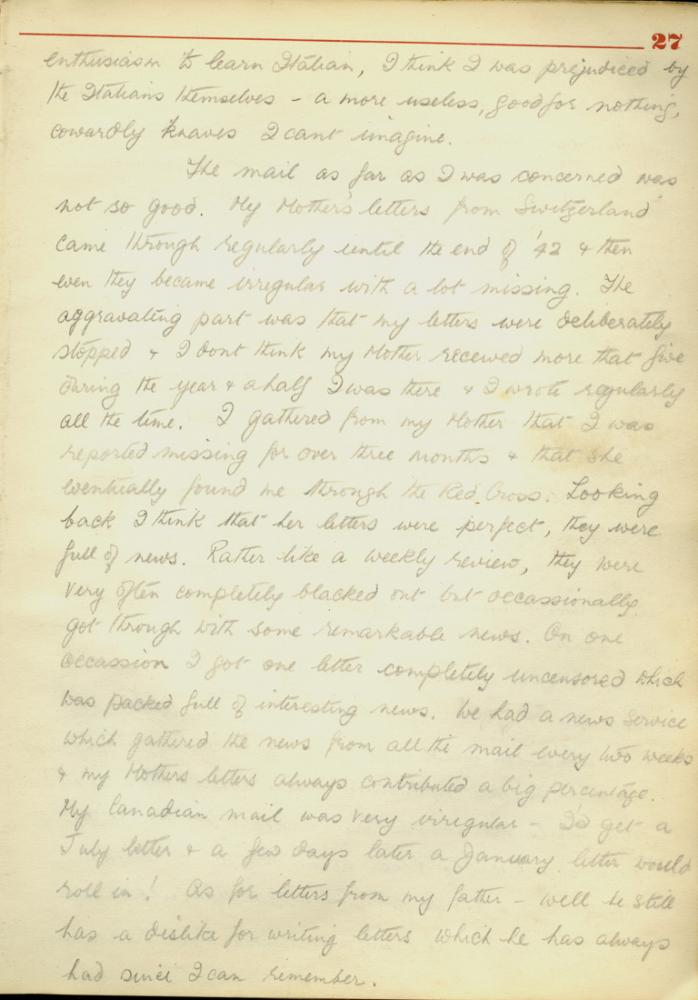 27
enthusiasm to learn Italian, I think I was prejudiced by
the Italians themselves - a more useless, good for nothing,
cowardly knaves I cant imagine.
The mail as far as I was concerned was
not so good. My Mother's letters from Switzerland
came through regularly until the end of '42 & then
even they became irregular with a lot missing. The
aggravating part was that my letters were deliberately
stopped & I dont think my Mother received more that five
during the year & a half I was there & I wrote regularly
all the time. I gathered from my Mother that I was
reported missing for over three months & that she
eventually found me through the Red Cross. Looking
back I think that her letters were perfect, they were
full of news. Rather like a weekly review, they were
very often completely blacked out but occassionally
got through with some remarkable news. On one
occassion I got one letter completely uncensored which
was packed full of interesting news. We had a news service
which gathered the news from all the mail every two weeks
& my Mothers letters always contributed a big percentage.
My Canadian mail was very irregular - I'd get a
July letter & a few days later a January letter would
roll in! As for letters from my father - well he still
has a dislike for writing letters which he has always
had since I can remember.